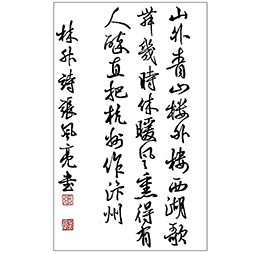 山外青山樓外樓西湖歌
舞幾時休暖風熏得有
人醉直把杭州作汴州
林升詩張風亮書